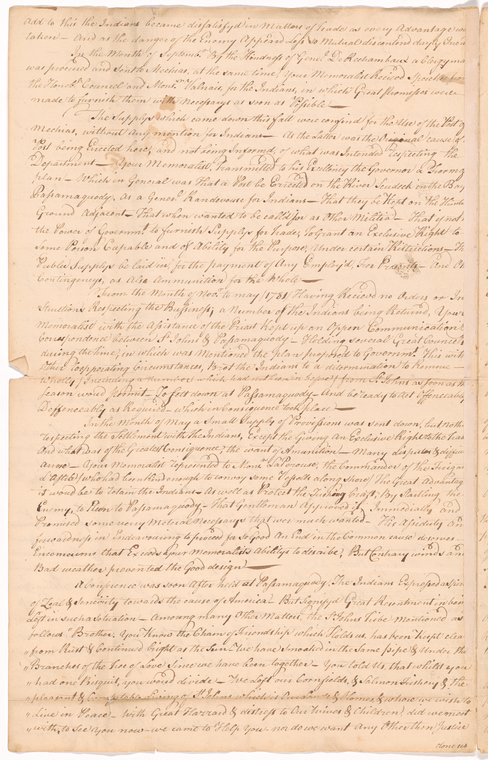 Add to this the Indians became dissatisfyd in Matters of trade as every Advantage was
taken — And as the danger of the Enemy Appeard less a Mutual discontent dayly
In the Month of Septemr. By the Kindness of Genl. D. Rochambeau a Clergyman
was procured and Sent to Mechias, at the same time, Your Memorialist Recived
the Honbl. Council and Monr. Valnais, for the Indians, in which Great promises were
made to furnish them with Necessarys as soon as Possible —
The Supplys which came down this fall were confind for the Use of the Post of
Mechias, without Any mention for Indians — As the Latter was the Original cause of
Post being Erected here, and not being Informd, of what was Intended respecting the
Department — Your Memorialist, transmitted to his Excellency the Governor a
plan — Which in General was that a Post be Errected on the River Scudock in the Bay
Passamaquody, As a General Randevouse for Indians — That they be Kept on the
Ground Adjacent — That when wanted to be calld for as Other Militia — That if not
the Power of Governmt. to furnish Supplys for trade, to Grant an Exclusive Right to
Some Person Capable and of Ability for the Purpose, Under certain Ristrictions — The
Publick Supplys be laid in, for the payment of Any Employ'd, For Presents — and
Contingencys, as Also Ammunition for the Whole —
From the Month of Novr. to May 1781 Having Recived no Orders or In
structions Respecting the Business; a Number of the Indians being Returnd, Your
Memorialist with the Assistance of the Priest Kept up an Oppen Communication
Correspondence between St. Johns & Passamaquody — Holding several Great Councels
during the time, in which was Mentiond the plan proposed to Governmt. This with
Other Coopperating Circumstances, Brot the Indians to a ditermination to Remove —
wholly, (Including a number which had not been in before) from St. Johns as soon as the
Season woud Permit — To set down at Passamaquody — And be ready to act Offencively
Deffencively as Required — which in consequence took place —
In the Month of May a Small Supply of Provissions was sent down, but nothing
respecting the Settlement with the Indians, Except the Giving an Exclusive Right to the trade
And what was of the Greatest Consiquence, the want of Amunition — Many disputes & difficultys
arose — Your Memorialist represented to Monr. La Perouse, the Commander of the Frigate
(who had been Kind enough to convoy some Vessells along Shore) the Great Advantage
it woud be to Retain the Indians — As well as Protect the Fishing Craft, By Battling the
Enemy, to Steer to Passamaquody — That Gentleman Approved it Immediatly and
Promised Some very Material Necessarys that were much wanted — The Assiduity and
forwardness in Endeavouring to proceed for so Good An End in the Common cause deserves
Encomiums that Exceeds Your Memorialists Ability to describe; But Contrary winds and
Bad weather prevented the Good design —
A Conference was soon After held at Passamaquody, The Indians Expressed a
of Zeal & Sincerity towards the cause of America — But Signifyd Great Resentment in being
left in such a Situation — Amoung many Other Matters, the St. Johns tribe mentiond as
follows "Brother, You Know the Chain of Friendship which Holds us has been Kept clear
from Rust & Continued Bright as the Sun — We have Smoaked in the Same Pipe & Under the
Branches of the tree of Love Since we have been together — You told Us, that whilst you
had one Bisquit, you would divide — We left our Cornfields, & Salmon Fishery & the
pleasant & Comfortable Living at St. Johns
Live in Peace — With Great Hazzard & distress to Our Wives & Children) did we most
with, to See you now — we came to Help You nor do we want Any Other then Justice
done us